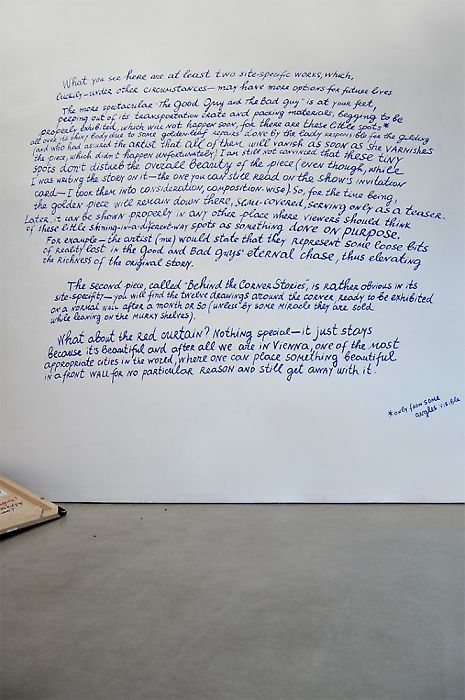 What you see here are at least two site-specific works, which,
luckily – under other circumstances – may have more options for future lives.
The more spectacular "The Good Guy and The Bad Guy" is at your feet,
peeping out of its transportation crate and packing materials, begging to be
properly exhibited, which will not happen soon, for there are these little spots*
all over its shiny body due to some golden-leaf repairs done by the lady responsible for the gilding
(and who had assured the artist that all of them will vanish as soon as she varnishes
the piece, which didn't happen unfortunately). I am still not convinced that these tiny
spots don't disturb the overall beauty of the piece (even though, while
I was writing the story on it – the one you can still read on the show's invitation
card – I took them into consideration, composition-wise). So, for the time being,
the golden piece will remain down there, semi-covered, serving only as a teaser.
Later, it can be shown properly in any other place where viewers should think
of these little shining-in-a-different-way spots as something done on purpose.
For example – the artist (me) would state that they represent some loose bits
of reality lost in the Good and Bad Guys' eternal chase, thus elevating
the richness of the original story.
The second piece, called "Behind the Corner Stories", is rather obvious in its
site-specifity – you will find the twelve drawings around the corner ready to be exhibited
on a normal wall after a month or so (unless by some miracle they are sold
while leaning on the murky shelves).
What about the red curtain? Nothing special – it just stays
because it's beautiful and after all we are in Vienna, one of the most
appropriate cities in the world, where one can place something beautiful
in a front wall for no particular reason and still get away with it.
*only from some
angles visible